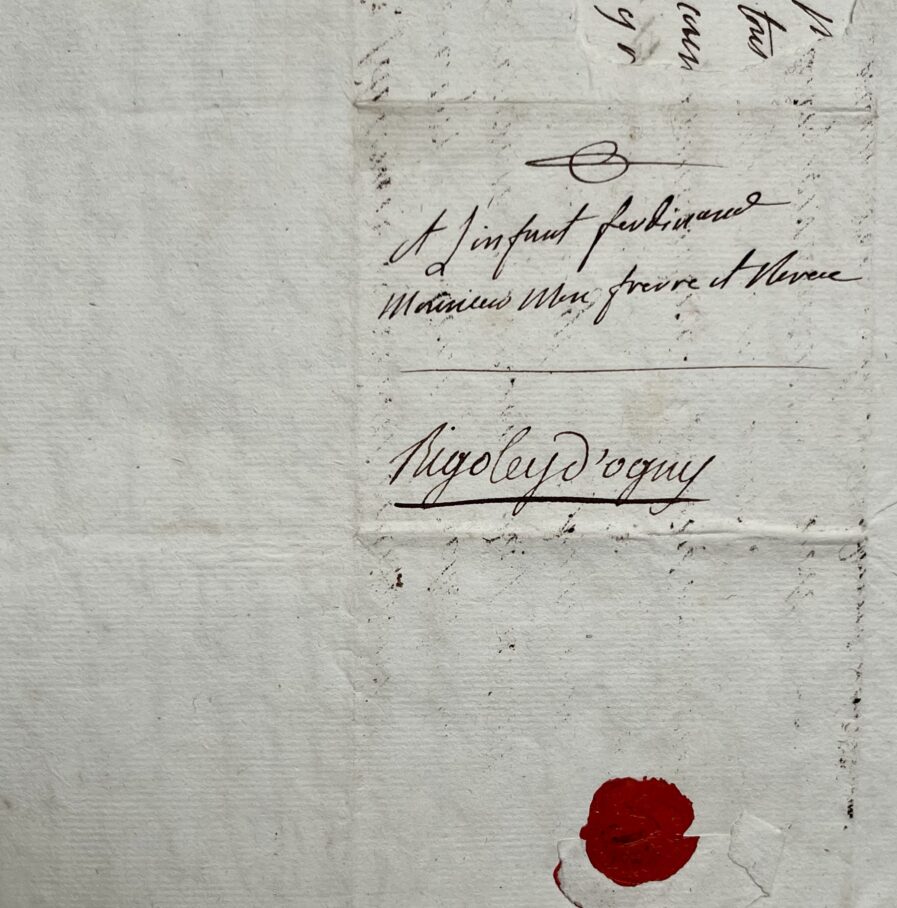 A L'infant ferdinand
Monsieur Mon frere et Neveu
Rigoley d'ogny